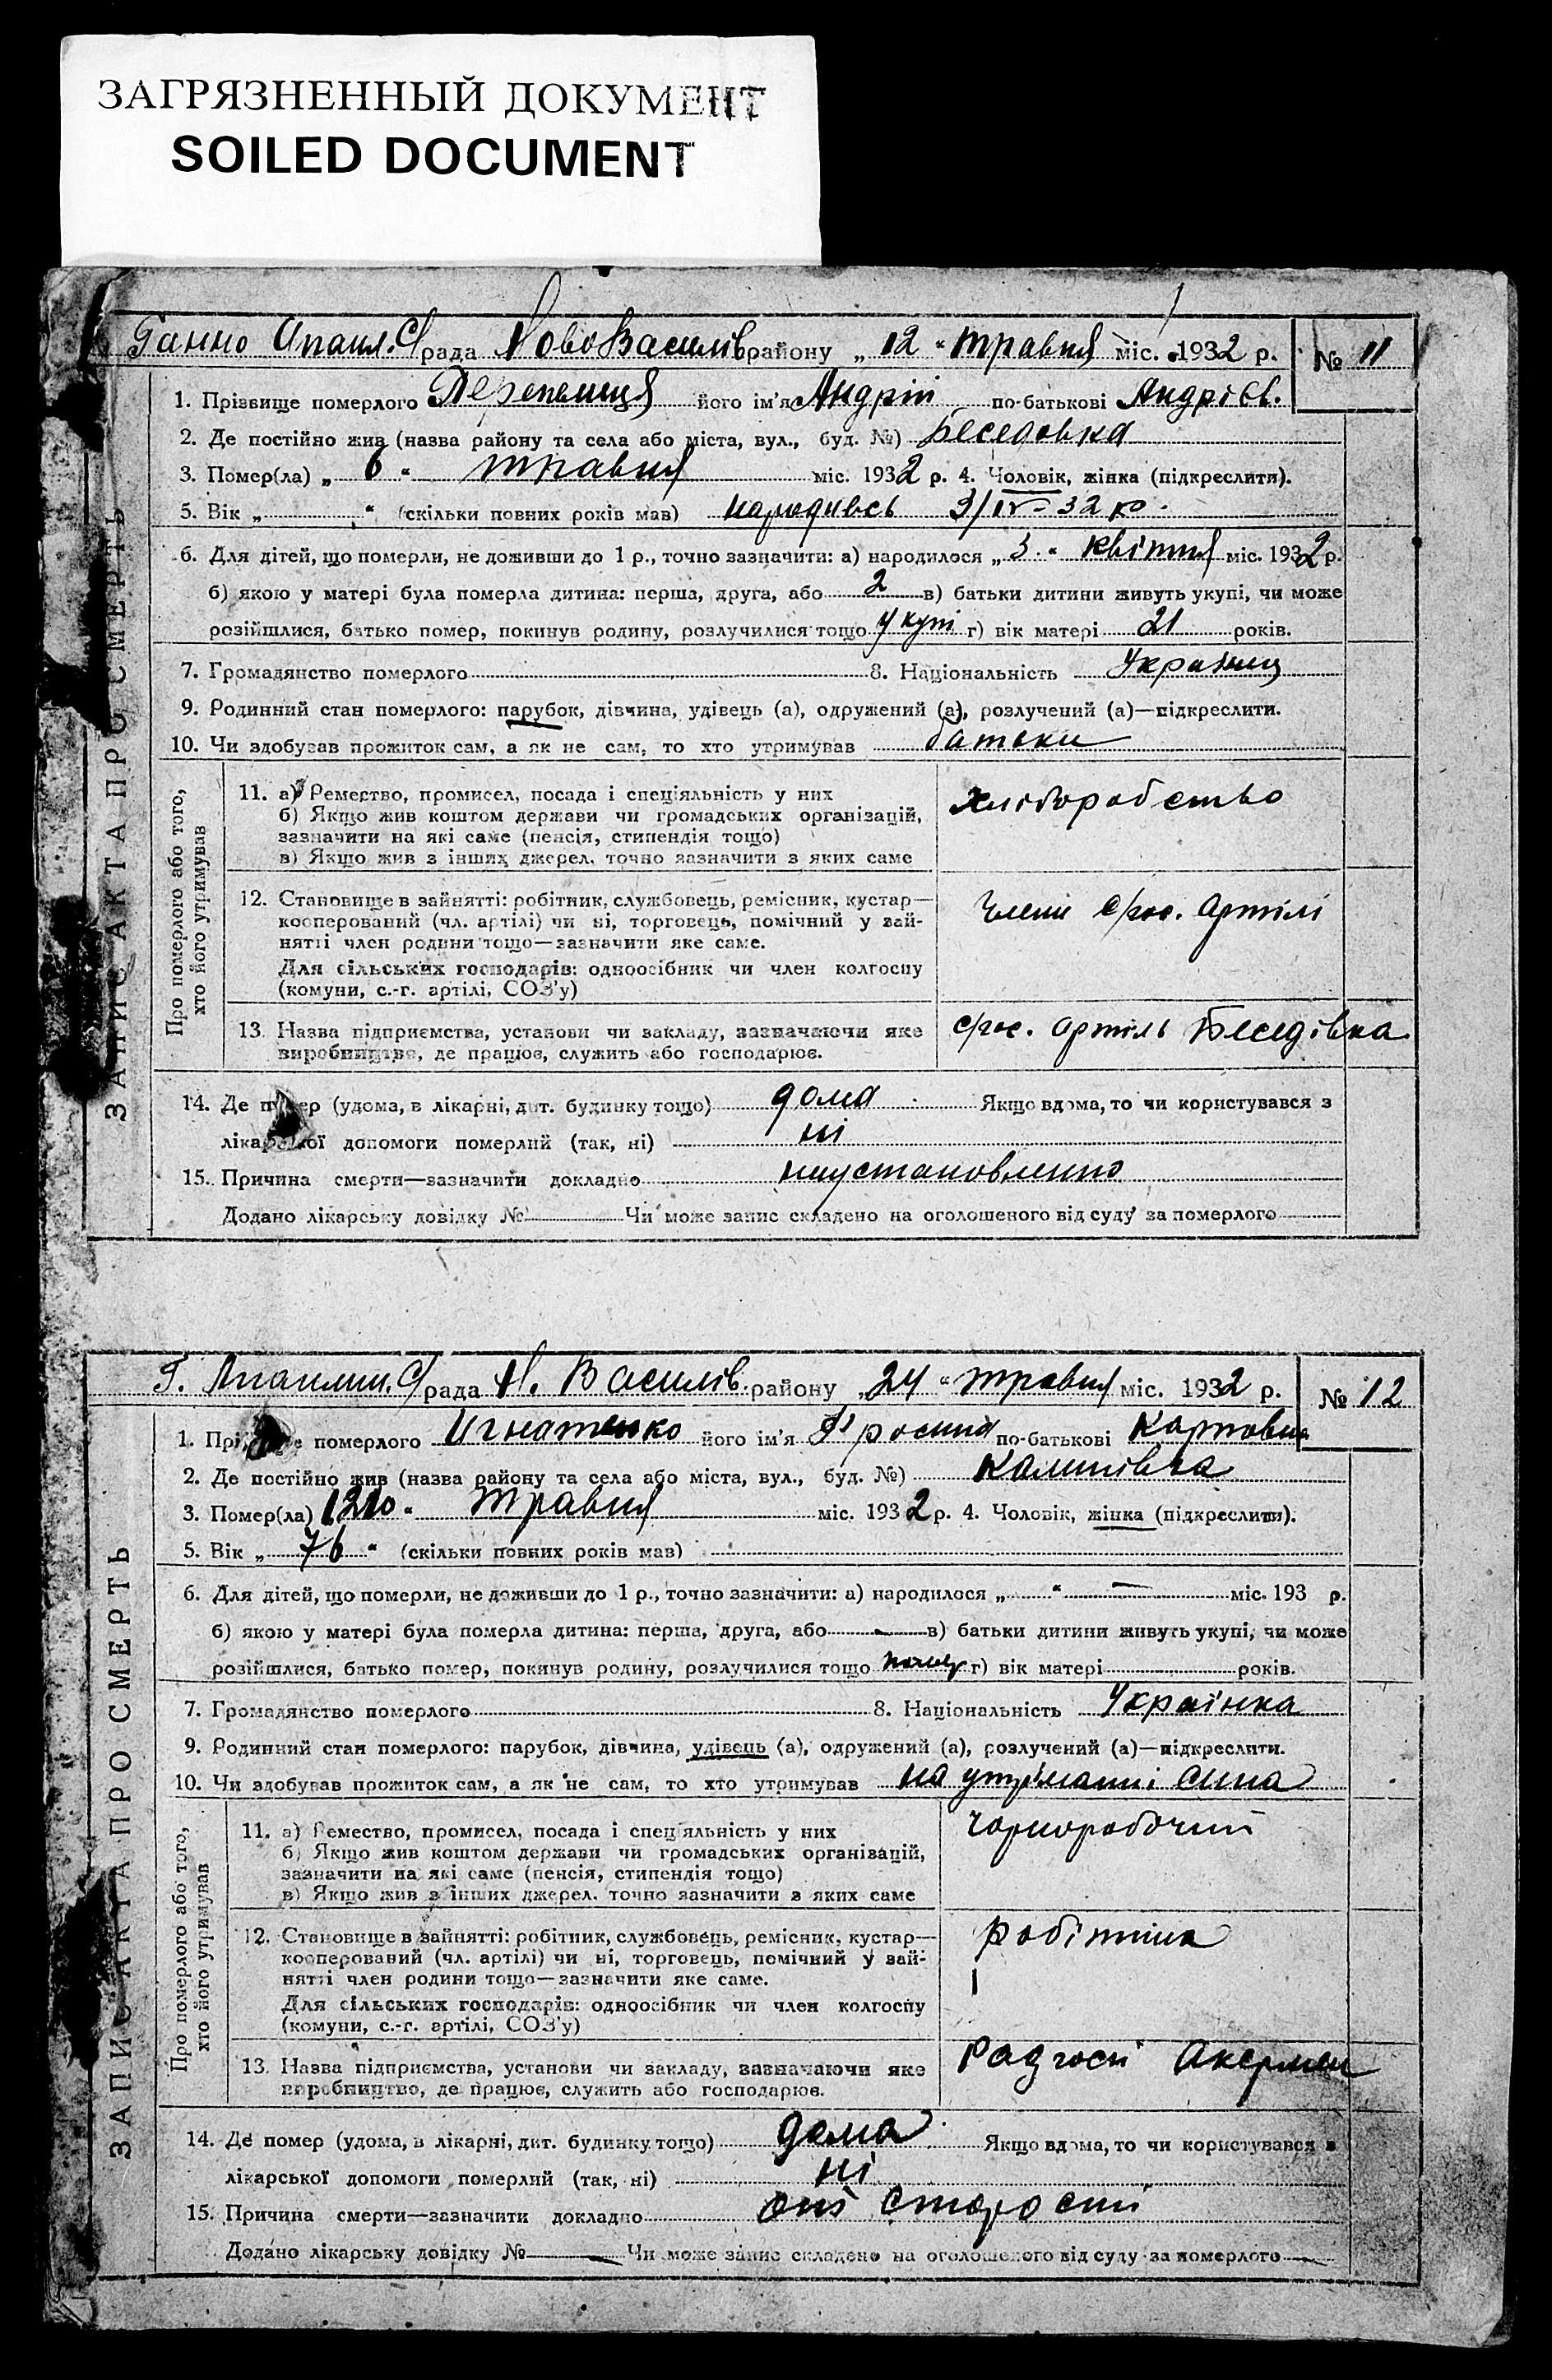 ЗАГРЯЗНЕННЫЙ ДОКУМЕНТ
SOILED DOCUMENT
Ганно Опанл. С/рада НовоВасилів району „12“ травня міс. 1932 р. № 11
1. Прізвище померлого Перепелиця його ім'я Андрій по-батькові Андрієв.
2. Де постійно жив (назва району та села або міста, вул., буд. №) Беседовка
3. Помер(ла) „6“ травня міс. 1932 р. 4. Чоловік, жінка (підкреслити).
5. Вік „ “ (скільки повних років мав) народивсь 3/IV-32 ро.
6. Для дітей, що померли, не доживши до 1 р., точно зазначити: а) народилося „3“ квітня міс. 1932 р.
б) якою у матері була померла дитина: перша, друга, або 2 в) батьки дитини живуть укупі, чи може
розійшлися, батько помер, покинув родину, розлучилися тощо укупі г) вік матері 21 років.
7. Громадянство померлого 8. Національність Українец
9. Родинний стан померлого: парубок, дівчина, удівець (а), одружений (а), розлучений (а)—підкреслити.
10. Чи здобував прожиток сам, а як не сам, то хто утримував батьки
ЗАПИС АКТА ПРО СМЕРТЬ
Про померлого або того,
хто його утримував
11. а) Ремество, промисел, посада і спеціяльність у них
б) Якщо жив коштом держави чи громадських організацій,
зазначити на які саме (пенсія, стипендія тощо)
в) Якщо жив з інших джерел, точно зазначити з яких саме
хліборобство
12. Становище в зайнятті: робітник, службовець, ремісник, кустар—
кооперований (чл. артілі) чи ні, торговець, помічний у зай-
нятті член родини тощо—зазначити яке саме.
Для сільських господарів: одноосібник чи член колгоспу
(комуни, с.-г. артілі, СОЗ'у)
Члени с/гос. Артілі
13. Назва підприємства, установи чи закладу, зазначаючи яке
виробництво, де працює, служить або господарює.
с/гос. артіль Беседівка
14. Де помер (удома, в лікарні, дит. будинку тощо) дома Якщо вдома, то чи користувався з
лікарської допомоги померлий (так, ні) ні
15. Причина смерти—зазначити докладно неустановленно
Додано лікарську довідку № Чи може запис складено на оголошеного від суду за померлого
Г. Апанлин. С/рада Н. Василів. району „24“ травня міс. 1932 р. № 12
1. Прізвище померлого Игнатенко його ім'я Фросина по-батькові Карповна
2. Де постійно жив (назва району та села або міста, вул., буд. №) Калинівка
3. Помер(ла) травня міс. 1932 р. 4. Чоловік, жінка (підкреслити).
5. Вік „76“ (скільки повних років мав)
6. Для дітей, що померли, не доживши до 1 р., точно зазначити: а) народилося „ “ — міс. 193 р.
б) якою у матері була померла дитина: перша, друга, або — в) батьки дитини живуть укупі, чи може
розійшлися, батько помер, покинув родину, розлучилися тощо г) вік матері років.
7. Громадянство померлого 8. Національність Українка
9. Родинний стан померлого: парубок, дівчина, удівець (а), одружений (а), розлучений (а)—підкреслити.
10. Чи здобував прожиток сам, а як не сам, то хто утримував на утріманні сина
ЗАПИС АКТА ПРО СМЕРТЬ
Про померлого або того,
хто його утримував
11. а) Ремество, промисел, посада і спеціяльність у них
б) Якщо жив коштом держави чи громадських організацій,
зазначити на які саме (пенсія, стипендія тощо)
в) Якщо жив з інших джерел, точно зазначити з яких саме
Чорноробочий
12. Становище в зайнятті: робітник, службовець, ремісник, кустар—
кооперований (чл. артілі) чи ні, торговець, помічний у зай-
нятті член родини тощо—зазначити яке саме.
Для сільських господарів: одноосібник чи член колгоспу
(комуни, с.-г. артілі, СОЗ'у)
робітник
13. Назва підприємства, установи чи закладу, зазначаючи яке
виробництво, де працює, служить або господарює.
Радгосп Акермен
14. Де помер (удома, в лікарні, дит. будинку тощо) дома Якщо вдома, то чи користувався з
лікарської допомоги померлий (так, ні) ні
15. Причина смерти—зазначити докладно от старости
Додано лікарську довідку № — Чи може запис складено на оголошеного від суду за померлого —